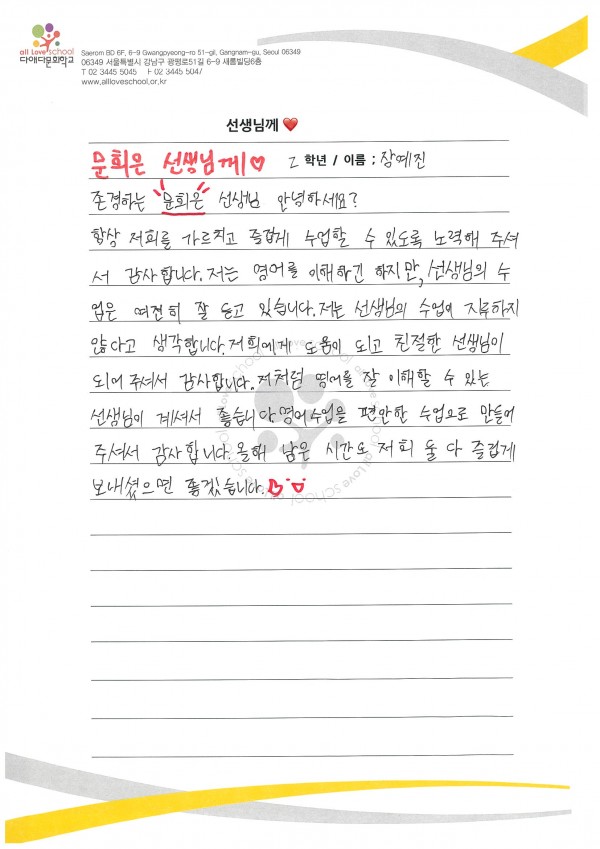 all Love school
다애다문화학교
Saerom BD 6F, 6-9 Gwangpyeong-ro 51-gil, Gangnam-gu, Seoul 06349
06349 서울특별시 강남구 광평로51길 6-9 새롬빌딩6층
T 02 3445 5045 F 02 3445 5047
www.allloveschool.or.kr
선생님께 ❤
문희은 선생님께♡ 2 학년 / 이름 : 장예진
존경하는 문희은 선생님 안녕하세요?
항상 저희를 가르치고 즐겁게 수업할 수 있도록 노력해 주셔
서 감사합니다. 저는 영어를 이해하긴 하지만, 선생님의 수
업은 여전히 잘 듣고 있습니다. 저는 선생님의 수업이 지루하지
않다고 생각합니다. 저희에게 도움이 되고 친절한 선생님이
되어 주셔서 감사합니다. 저처럼 영어를 잘 이해할 수 있는
선생님이 계셔서 좋습니다 영어수업을 편안한 수업으로 만들어
주셔서 감사합니다. 올해 남은 시간도 저희 둘 다 즐겁게
보내셨으면 좋겠습니다.
all Love school